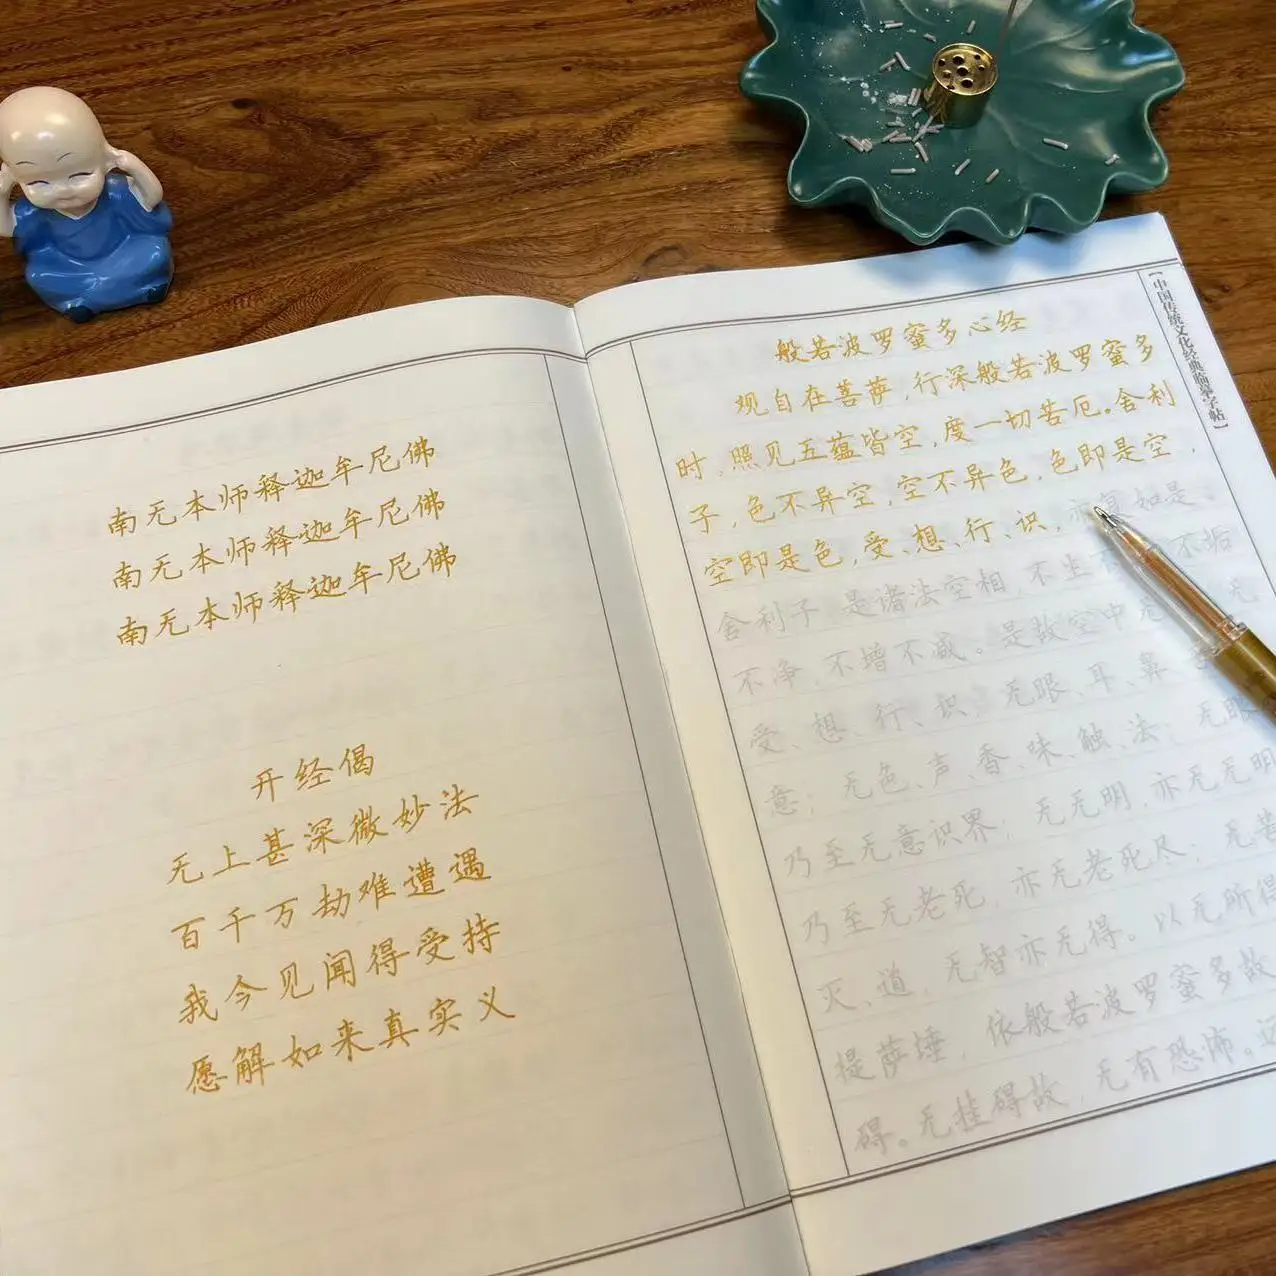 南无本师释迦牟尼佛
南无本师释迦牟尼佛
南无本师释迦牟尼佛
开经偈
无上甚深微妙法
百千万劫难遭遇
我今见闻得受持
愿解如来真实义
【中国传统文化经典临摹字帖】
般若波罗蜜多心经
观自在菩萨，行深般若波罗蜜多
时，照见五蕴皆空，度一切苦厄。舍利
子，色不异空，空不异色，色即是空，
空即是色，受、想、行、识，亦复如是。
舍利子 是诸法空相，不生 不垢
不净、不增不减。是故空中无 无
受、想、行、识；无眼、耳、鼻
意；无色、声、香、味、触、法；无眼
乃至无意识界；无无明，亦无无明
乃至无老死，亦无老死尽；无苦
灭、道，无智亦无得。以无所得
提萨埵，依般若波罗蜜多故
碍。无挂碍故，无有恐怖。远